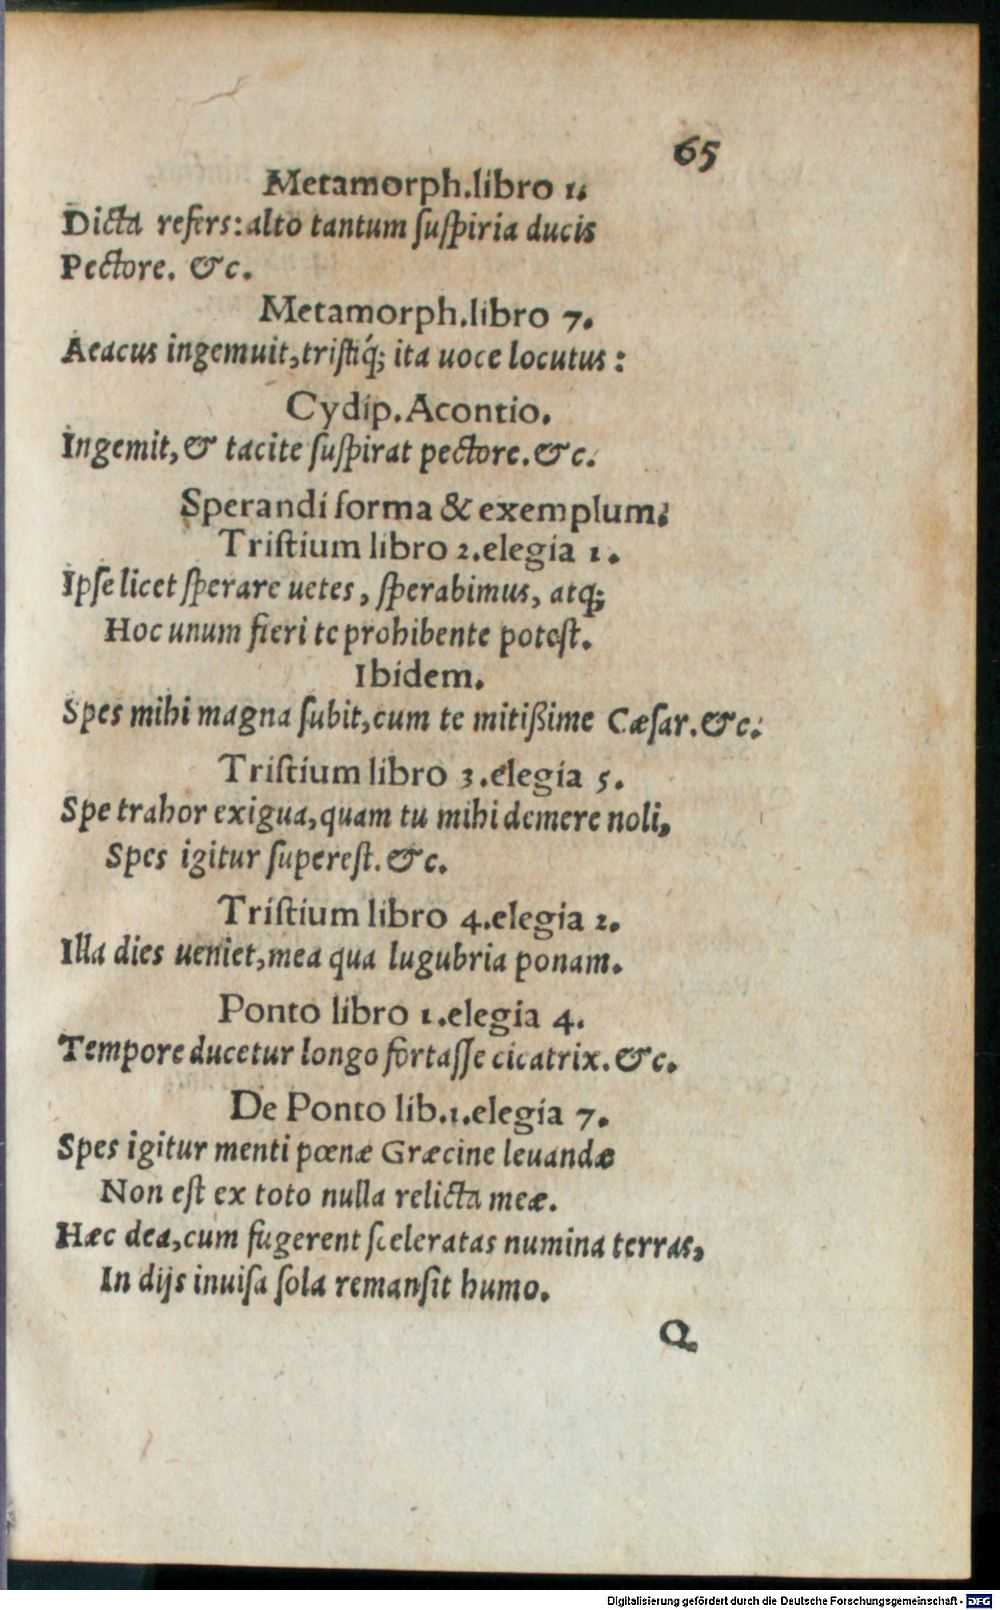 65
Metamorph.libro 1.
Dicta refers:alto tantum ſuſpiria ducis
Pectore. &c.
Metamorph.libro 7.
Aeacus ingemuit,triſtiq́; ita uoce locutus :
Cydip.Acontio.
Ingemit,& tacite ſuſpirat pectore.&c.
Sperandi forma & exemplum.
Triſtium libro 2.elegia 1.
Ipſe licet ſperare uetes, ſperabimus, atq;
Hoc unum fieri te prohibente poteſt.
Ibidem.
Spes mihi magna ſubit,cum te mitißime Cæſar.&c.
Triſtium libro 3.elegia 5.
Spe trahor exigua,quam tu mihi demere noli,
Spes igitur ſupereſt.&c.
Triſtium libro 4.elegia 2.
Illa dies ueniet,mea qua lugubria ponam.
Ponto libro 1.elegia 4.
Tempore ducetur longo fortaſſe cicatrix.&c.
De Ponto lib.1.elegia 7.
Spes igitur menti pœnæ Græcine leuandæ
Non eſt ex toto nulla relicta meæ.
Hæc dea,cum fugerent ſceleratas numina terras,
In dijs inuiſa ſola remanſit humo.
Q
Digitalisierung gefördert durch die Deutsche Forschungsgemeinschaft - DFG